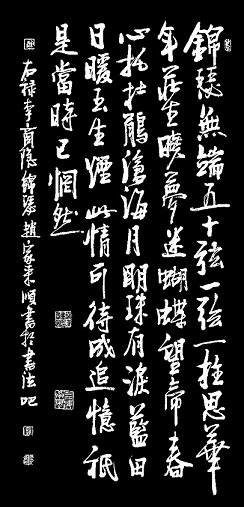 錦瑟無端五十弦一弦一柱思華
年莊生曉夢迷蝴蝶望帝春
心托杜鵑滄海月明珠有淚藍田
日暖玉生煙此情可待成追憶祇
是當時已惘然
右錄李商隱錦瑟趙家來順書於書法吧